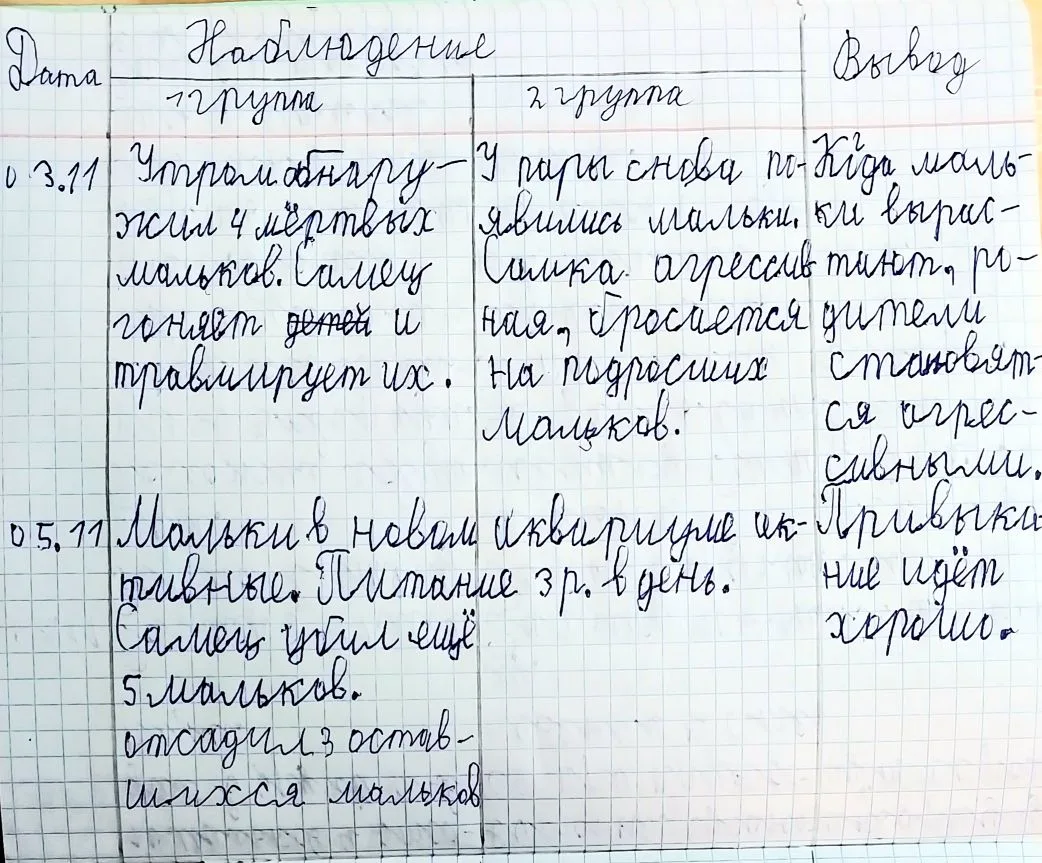 Дата
Наблюдение
Вывод
1 группа
2 группа
03.11
Утром обнару-
жил 4 мёртвых
мальков. Самец
гоняет детей и
травмирует их.
У пары снова по-
явились мальки.
Самка агрессив
ная, бросается
на подросших
мальков.
Кгда маль-
ки вырас-
тают, ро-
дители
становят-
ся агрес-
сивными.
05.11
Мальки в новом аквариуме ак-
тивные. Питание 3 р. в день.
Самец убил ещё
5 мальков.
отсадил 3 остав-
шихся мальков
Привыка
ние идёт
хорошо.